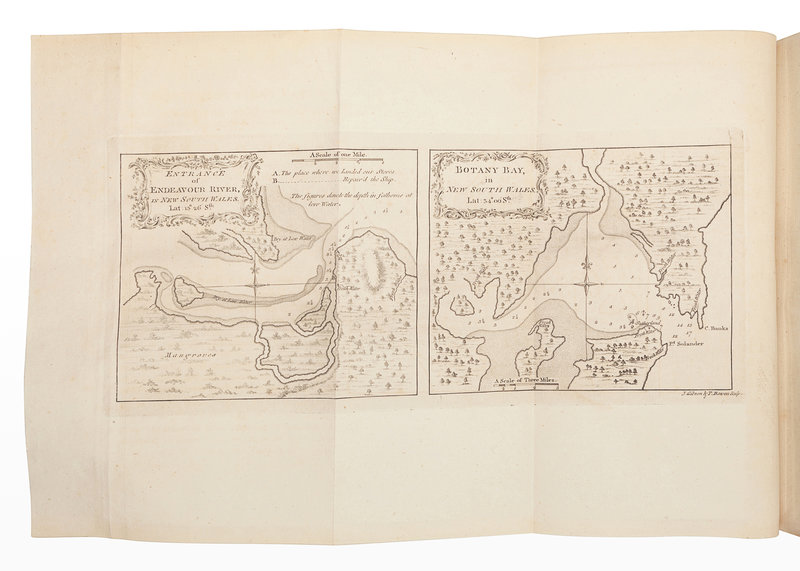 ENTRANCE
of
ENDEAVOUR RIVER,
in NEW SOUTH WALES.
Lat: 15° 26' Sth.
A Scale of one Mile.
A. The place where we landed our Stores
B. Repair'd the Ship.
The figures denote the depth in fathoms at
low Water.
Dry at Low Water
Dry at Low Water
Mangroves
BOTANY BAY,
in
NEW SOUTH WALES
Lat 34° 00 Sth.
C. Banks
Pt. Solander
A Scale of Three Miles.
J. Gibson & T. Bowen Sculp.